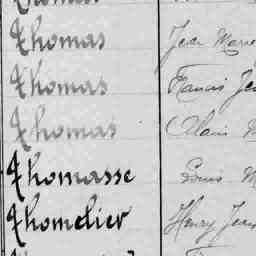 Thomas Jean Marie
Thomas Francis Jea
Thomas Alain M
Thomasse Louis M
Thomelier Henry Jean